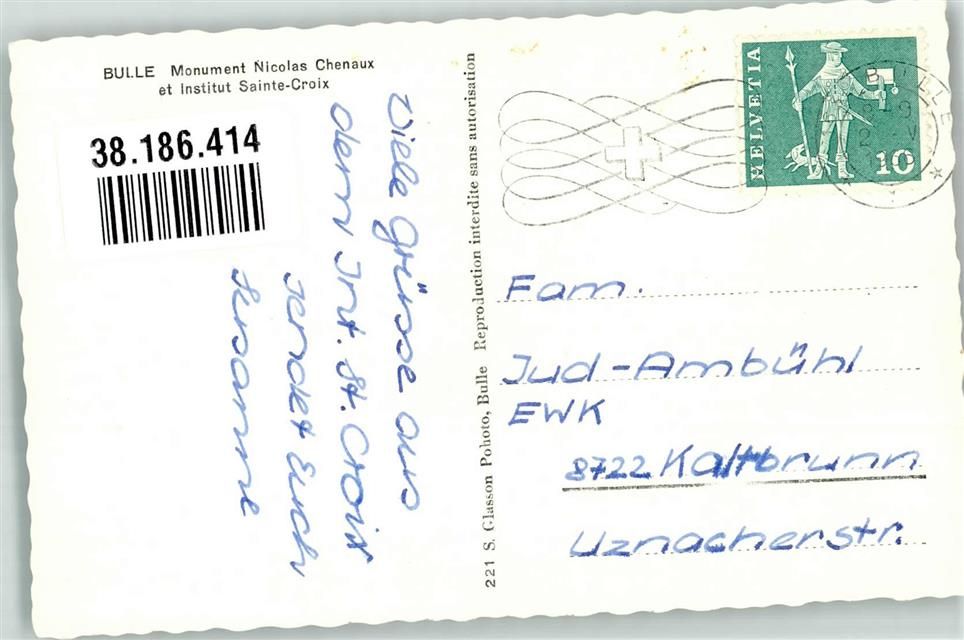 BULLE Monument Nicolas Chenaux
et Institut Sainte-Croix
38.186.414
Viele Grüsse aus
dem Inst. St. Croix
sendet Euch
221 S. Glasson Pohoto, Bulle Reproduction interdite sans autorisation
HELVETIA
10
BULLE
Fam.
Jud-Ambühl
EWK
8722 Kaltbrunn
Uznacherstr.